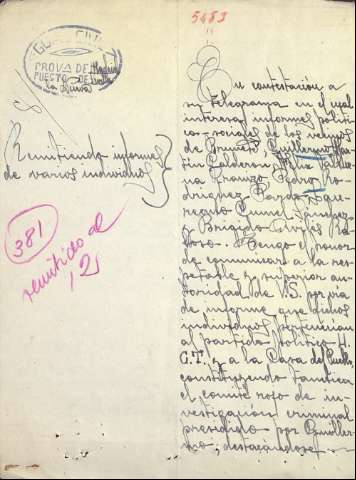 5483
GUARDIA CIVIL
PROVA DE Madrid
PUESTO DE
Remitiendo informes
de varios individuos
381
remitido al
12
En contestación a
su telegrama en el cual
interesa informes politico
sociales de los vecinos
de Guillermo
Calderon
Pedro Ro
driguez
Sanchez
y Brigido
Tengo el honor
de comunicar a la res
petable y superior au
toridad de V.S. por via
de informe que dichos
individuos pertenecian
al partido politico U.
G.T. y a la Casa del Pueblo,
constituyendo tambien
el comite rojo de in
vestigacion criminal
presidido por Guiller
mo, destacandose